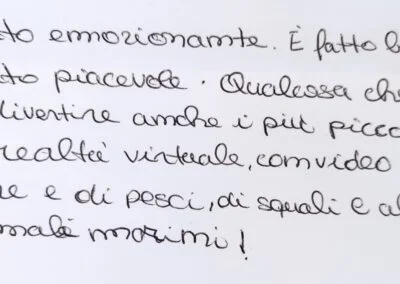 to emozionante. È fatto b
to piacevole. Qualcosa che
divertire anche i più picco
realtà virtuale, con video
re e di pesci, di squali e al
mali marini!